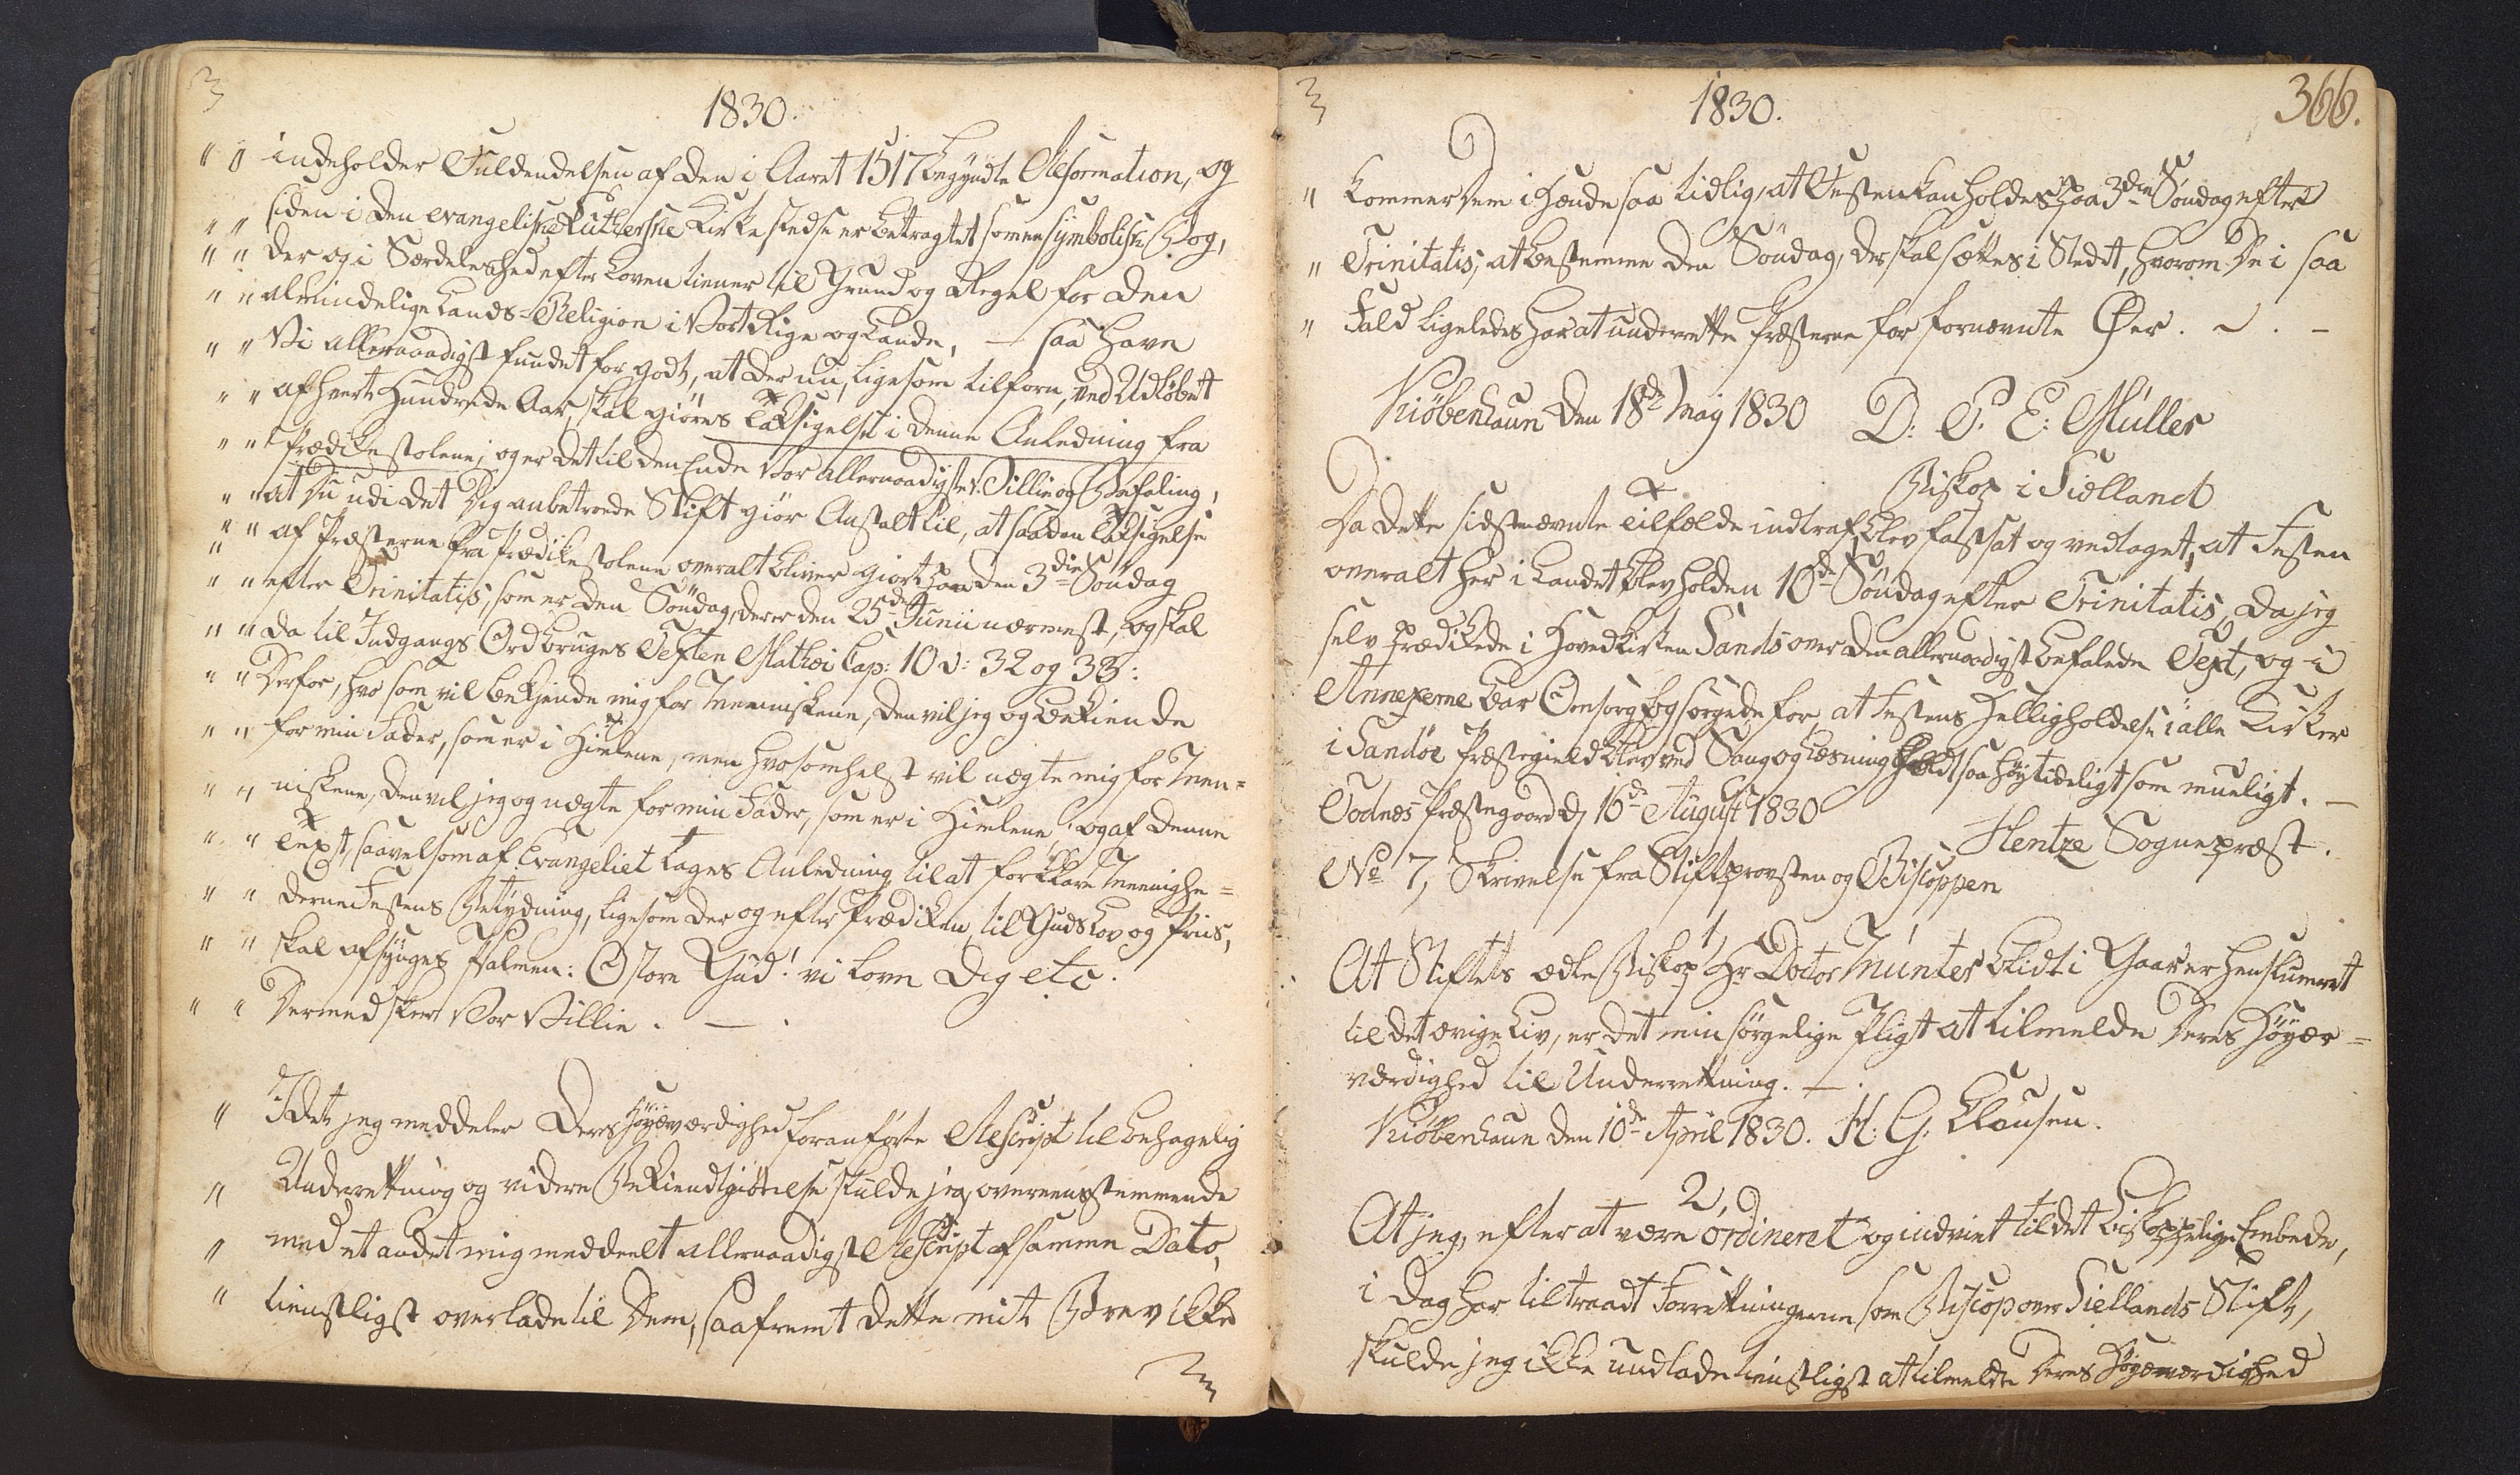 1830.
" " indeholder Fuldendelsen af den i Aaret 1517 begyndte Reformation, og
" " siden i den evangeliske Lutherske Kirke stedse er betragtet som en symbolisk Bog,
" " der og i Særdeleshed efter Loven tiener til Grund og Regel for den
" " almindelige Lands-Religion i Vort Rige og Lande, — saa have
" " Vi allernaadigst fundet for godt, at der nu, ligesom tilforn, ved Udløbet
" " af hvert Hundrede Aar, skal giøres Taksigelse i denne Anledning fra
" " Prædikestolene; og er det til den Ende Vor allernaadigste Villie og Befaling,
" " at Du udi det Dig anbetroede Stift giør Anstalt til, at saadan Taksigelse
" " af Præsterne fra Prædikestolene overalt bliver giort paa den 3die Søndag
" " efter Trinitatis, som er den Søndag, der er den 25de Junii nærmest, og skal
" " da til Indgangs Ord bruges Texten Mathæi Cap: 10 v: 32 og 33:
" " Derfor, hvo som vil bekjende mig for Menniskene, den vil jeg og bekiende
" " for min Fader, som er i Himlene, men hvosomhelst vil nægte mig for Men=
" " niskene, den vil jeg og nægte for min Fader, som er i Himlene; og af denne
" " Text, saavelsom af Evangeliet tages Anledning til at forklare Menighe=
" " derne Festens Betydning, ligesom der og efter Prædiken, til Guds Lov og Priis,
" " skal afsynges Psalmen: O store Gud! vi love Dig etc.
" " Dermed skeer Vor Villie. — .
" Idet jeg meddeler Deres Høyærværdighed foranførte Rescript til behagelig
" Underretning og videre Bekiendtgiørelse skulde jeg, overeensstemmende
" med et andet mig meddeelt allernaadigst Rescript af samme Dato,
" tienstligst overlade til Dem, saafremt dette mit Brev ikke
1830.
366.
" kommer Dem i Hænde saa tidlig, at Festen kan holdes paa 3die Søndag efter
" Trinitatis, at bestemme den Søndag, der skal sættes i Stedet, hvorom De i saa
" Fald ligeledes har at underrette Præsterne for fornævnte Øer. — . —
Kiøbenhavn den 18de May 1830 D: P. E: Müller
Biskop i Siælland
Da dette sidstnævnte Tilfælde indtraf, blev fastsat og vedtaget, at Festen
overalt her i Landet blev holden 10de Søndag efter Trinitatis, da jeg
selv prædikede i Hovedkirken Sands over den allernaadigst befalede Text, og i
Annexerne bar Omsorg og sørgede for, at Festens Helligholdelse i alle Kirker
i Sandøe Præstegield blev ved Sang og Læsning holdt saa høytideligt som mueligt. —
Todnæs Præstegaard d 16de August 1830
Hentze Sognepræst.
No 7, Skrivelse fra Stiftprovsten og Biscoppen
1,
At Stiftets ædle Biskop Hr Doctor Münter blidt i Gaar er hensluMret
til det ævige Liv, er det min sørgelige Pligt at tilmelde Deres Høyær=
værdighed til Underretning. — .
Kiøbenhavn den 10de April 1830. H: G: Clausen.
2,
At jeg, efter at være ordineret og indviet til det biskoppelige Embede,
i Dag har tiltraadt Forretningerne som Biscop over Siellands Stift,
skulde jeg ikke undlade tienstligst at tilmelde Deres Høyærværdighed